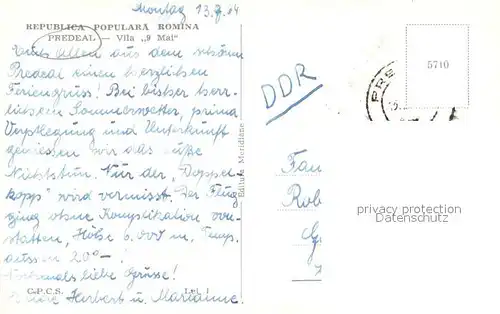 Montag 13.7.64
REPUBLICA POPULARĂ ROMÎNĂ
PREDEAL — Vila „9 Mai"
Euch Allen aus dem schönen
Predeal einen herzlichen
Feriengruss! Bei bisher herr-
lichem Sommerwetter, prima
Verpflegung und Unterkunft
geniessen wir das süße
Nichtstun. Nur der „Doppel-
kopp" wird vermisst. Der Flug
ging ohne Komplikation von-
statten, Höhe 6.000 m, Temp.
aussen 20° - !
Nochmals liebe Grüsse!
Herbert u. Marianne.
C.P.C.S. Lei 1
Editura Meridiane
DDR
5710
Fam
Rob
privacy protection
Datenschutz